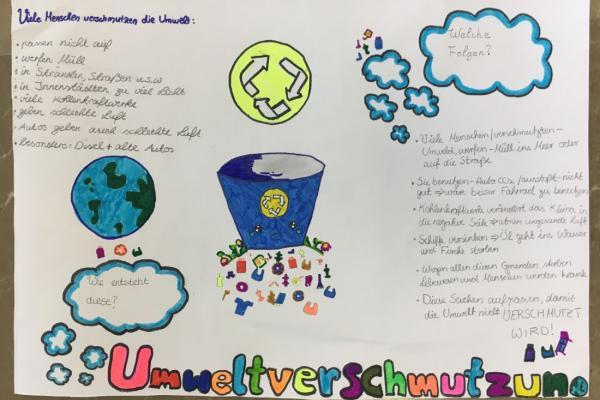 Viele Menschen verschmutzen die Umwelt:
• passen nicht auf
• werfen Müll
• in Stränden, Straßen u.s.w
• in Innenstädten zu viel Licht
• viele Kohlenkraftwerke
geben schlechte Luft
• Autos geben auch schlechte Luft
• besonders: Disel + alte Autos
Wie entsteht
diese?
Welche
Folgen?
• Viele Menschen verschmutzten
Umwelt, werfen Müll ins Meer oder
auf die Straße
• Sie benutzen Auto CO₂ ausstoß nicht
gut ⇒ wäre besser Fahrrad zu benutzen
• Kohlenkraftwerke verändert das Klima in
die negative Seite ⇒ atmen ungesunde Luft
• Schiffe versinken ⇒ Öl geht ins Wasser
und Fische sterben
• Wegen allen diesen Gründen sterben
Lebewesen und Menschen werden krank
• Diese Sachen aufpassen, damit
die Umwelt nicht VERSCHMUTZT
WIRD!
Umweltverschmutzung